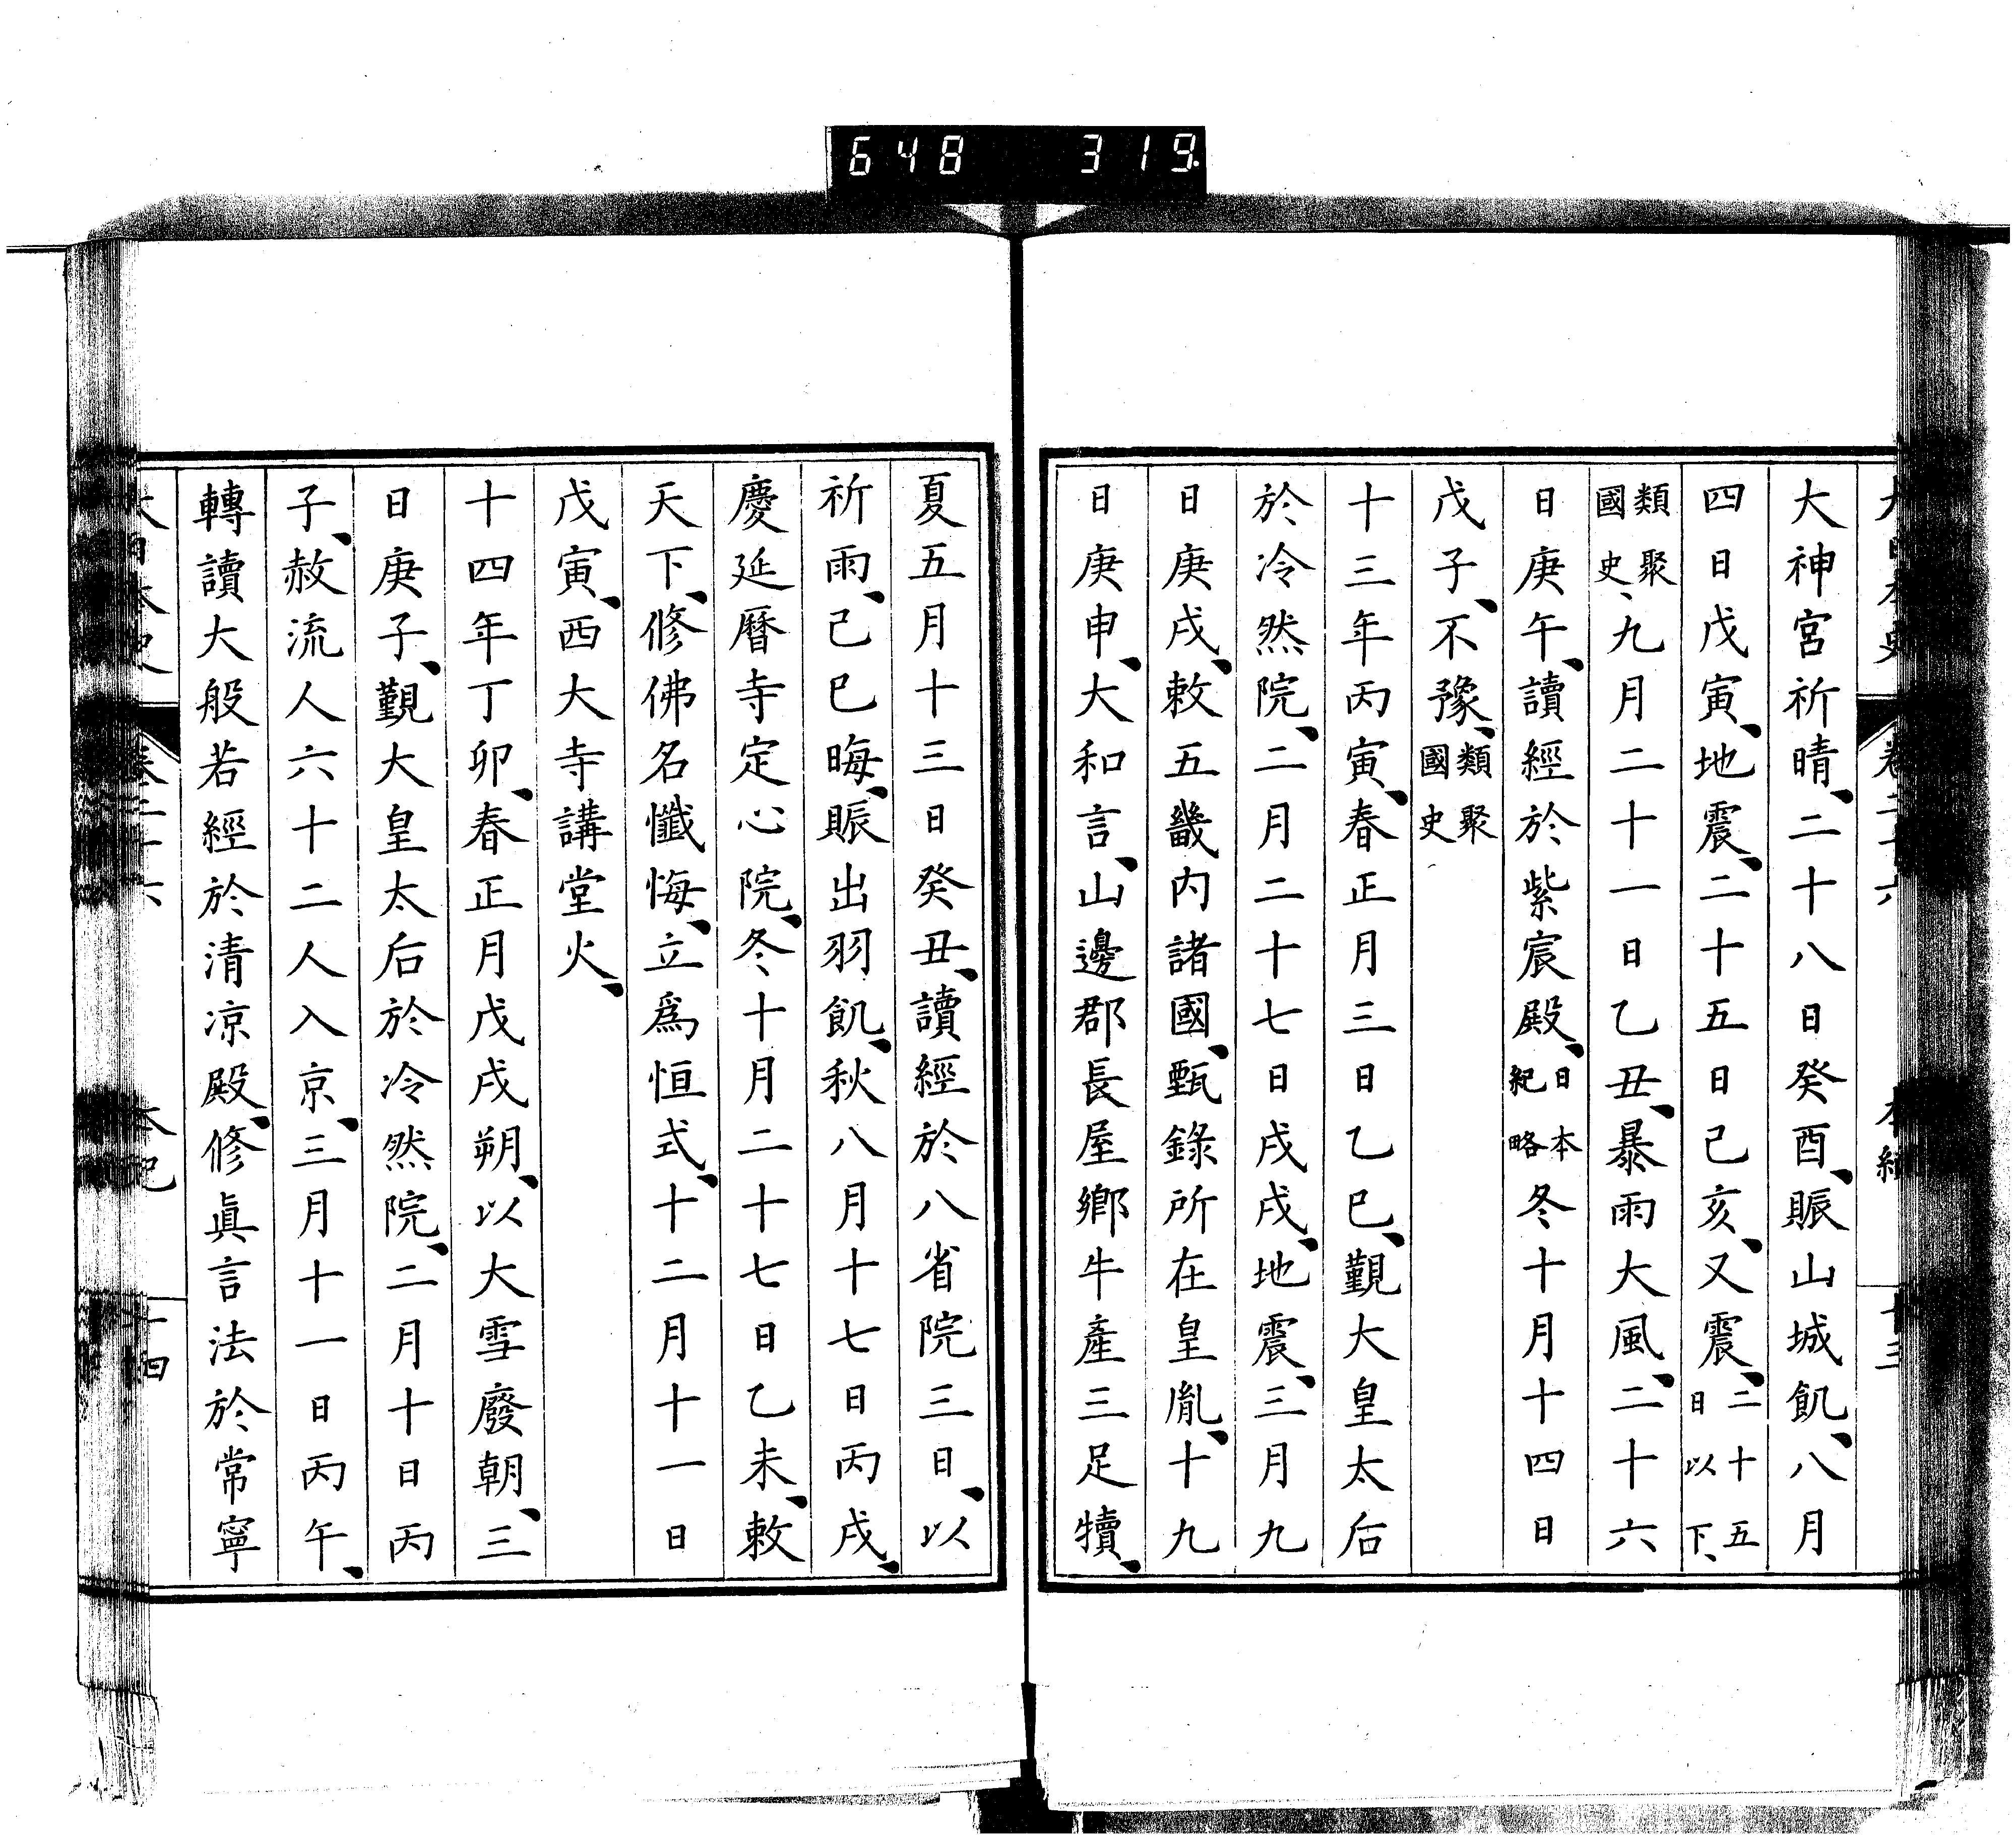 648 319
大神宮祈晴、二十八日癸酉、賑山城飢、八月
四日戊寅、地震、二十五日己亥、又震、二十五日以下、
類聚國史、九月二十一日乙丑、暴雨大風、二十六
日庚午、讀經於紫宸殿、日本紀略冬十月十四日
戊子、不豫、類聚國史
十三年丙寅、春正月三日乙巳、覲大皇太后
於冷然院、二月二十七日戌戌、地震、三月九
日庚戌、敕五畿内諸國、甄錄所在皇胤、十九
日庚申、大和言、山邊郡長屋鄉牛產三足犢、
夏五月十三日癸丑、讀經於八省院三日、以
祈雨、己巳晦、賑出羽飢、秋八月十七日丙戌、
慶延曆寺定心院、冬十月二十七日乙未、敕
天下、修佛名懺悔、立爲恒式、十二月十一日
戊寅、西大寺講堂火、
十四年丁卯、春正月戊戌朔、以大雪廢朝、三
日庚子、覲大皇太后於冷然院、二月十日丙
子、赦流人六十二人入京、三月十一日丙午、
轉讀大般若經於清凉殿、修眞言法於常寧